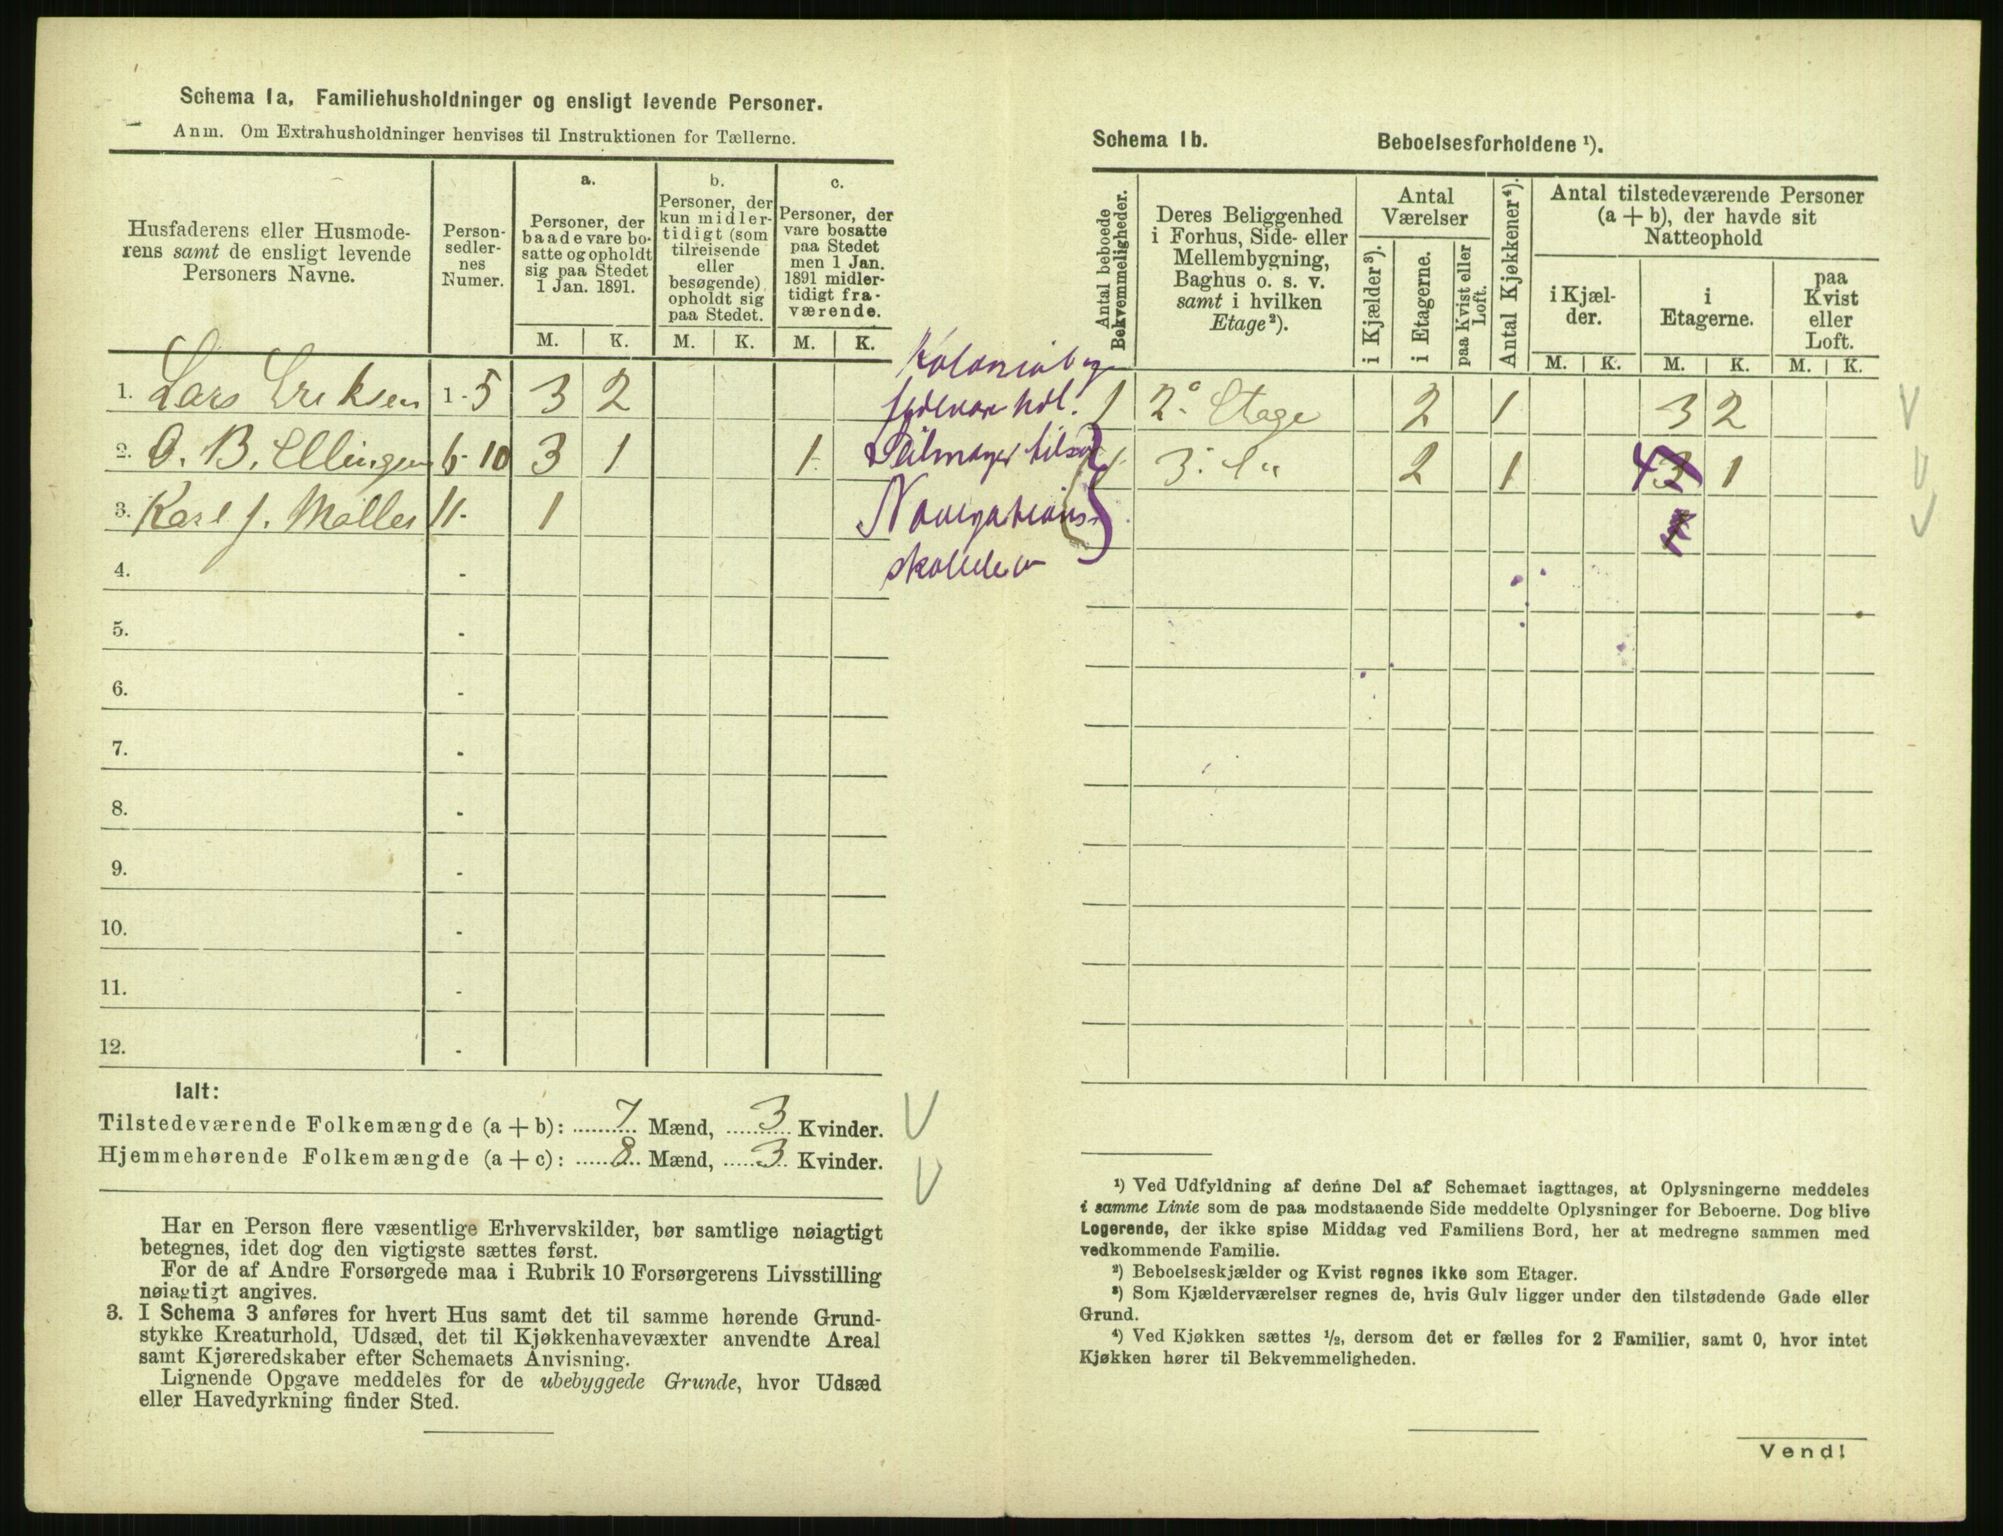 Schema 1a. Familiehusholdninger og ensligt levende Personer.
Anm. Om Extrahusholdninger henvises til Instruktionen for Tællerne.
Husfaderens eller Husmoderens samt de ensligt levende Personers Navne.
Personsedlernes Numer.
a.
Personer, der baade vare bosatte og opholdt sig paa Stedet 1 Jan. 1891.
b.
Personer, der kun midlertidigt (som tilreisende eller besøgende) opholdt sig paa Stedet.
c.
Personer, der vare bosatte paa Stedet men 1 Jan. 1891 midlertidigt fraværende.
M. K. M. K. M. K.
1. Lars Eriksen 1-5 3 2
2. O. B. Ellingsen 6-10 3 1 1
3. Karl J. Møller 11- 1
4. -
5. -
6. -
7. -
8. -
9. -
10. -
11. -
12. -
Kolonial og
fedevare hdl.
Seilmager
Navigations
Ialt:
Tilstedeværende Folkemængde (a + b): 7 Mænd, 3 Kvinder.
Hjemmehørende Folkemængde (a + c): 8 Mænd, 3 Kvinder.
Har en Person flere væsentlige Erhvervskilder, bør samtlige nøiagtigt
betegnes, idet dog den vigtigste sættes først.
For de af Andre Forsørgede maa i Rubrik 10 Forsørgerens Livsstilling
nøiagtigt angives.
3. I Schema 3 anføres for hvert Hus samt det til samme hørende Grund-
stykke Kreaturhold, Udsæd, det til Kjøkkenhavevæxter anvendte Areal
samt Kjøreredskaber efter Schemaets Anvisning.
Lignende Opgave meddeles for de ubebyggede Grunde, hvor Udsæd
eller Havedyrkning finder Sted.
Schema 1b. Beboelsesforholdene ¹).
Antal beboede Bekvemmeligheder.
Deres Beliggenhed i Forhus, Side- eller Mellembygning, Baghus o. s. v. samt i hvilken Etage ²).
Antal Værelser
i Kjælder ³).
i Etagerne.
paa Kvist eller Loft.
Antal Kjøkkener ⁴).
Antal tilstedeværende Personer (a + b), der havde sit Natteophold
i Kjælder.
i Etagerne.
paa Kvist eller Loft.
M. K. M. K. M. K.
1 2. Etage 2 1 3 2
1 3. "" 2 1 4 3 1
1
¹) Ved Udfyldning af denne Del af Schemaet iagttages, at Oplysningerne meddeles
i samme Linie som de paa modstaaende Side meddelte Oplysninger for Beboerne. Dog blive
Logerende, der ikke spise Middag ved Familiens Bord, her at medregne sammen med
vedkommende Familie.
²) Beboelseskjælder og Kvist regnes ikke som Etager.
³) Som Kjælderværelser regnes de, hvis Gulv ligger under den tilstødende Gade eller
Grund.
⁴) Ved Kjøkken sættes ½, dersom det er fælles for 2 Familier, samt 0, hvor intet
Kjøkken hører til Bekvemmeligheden.
Vend!